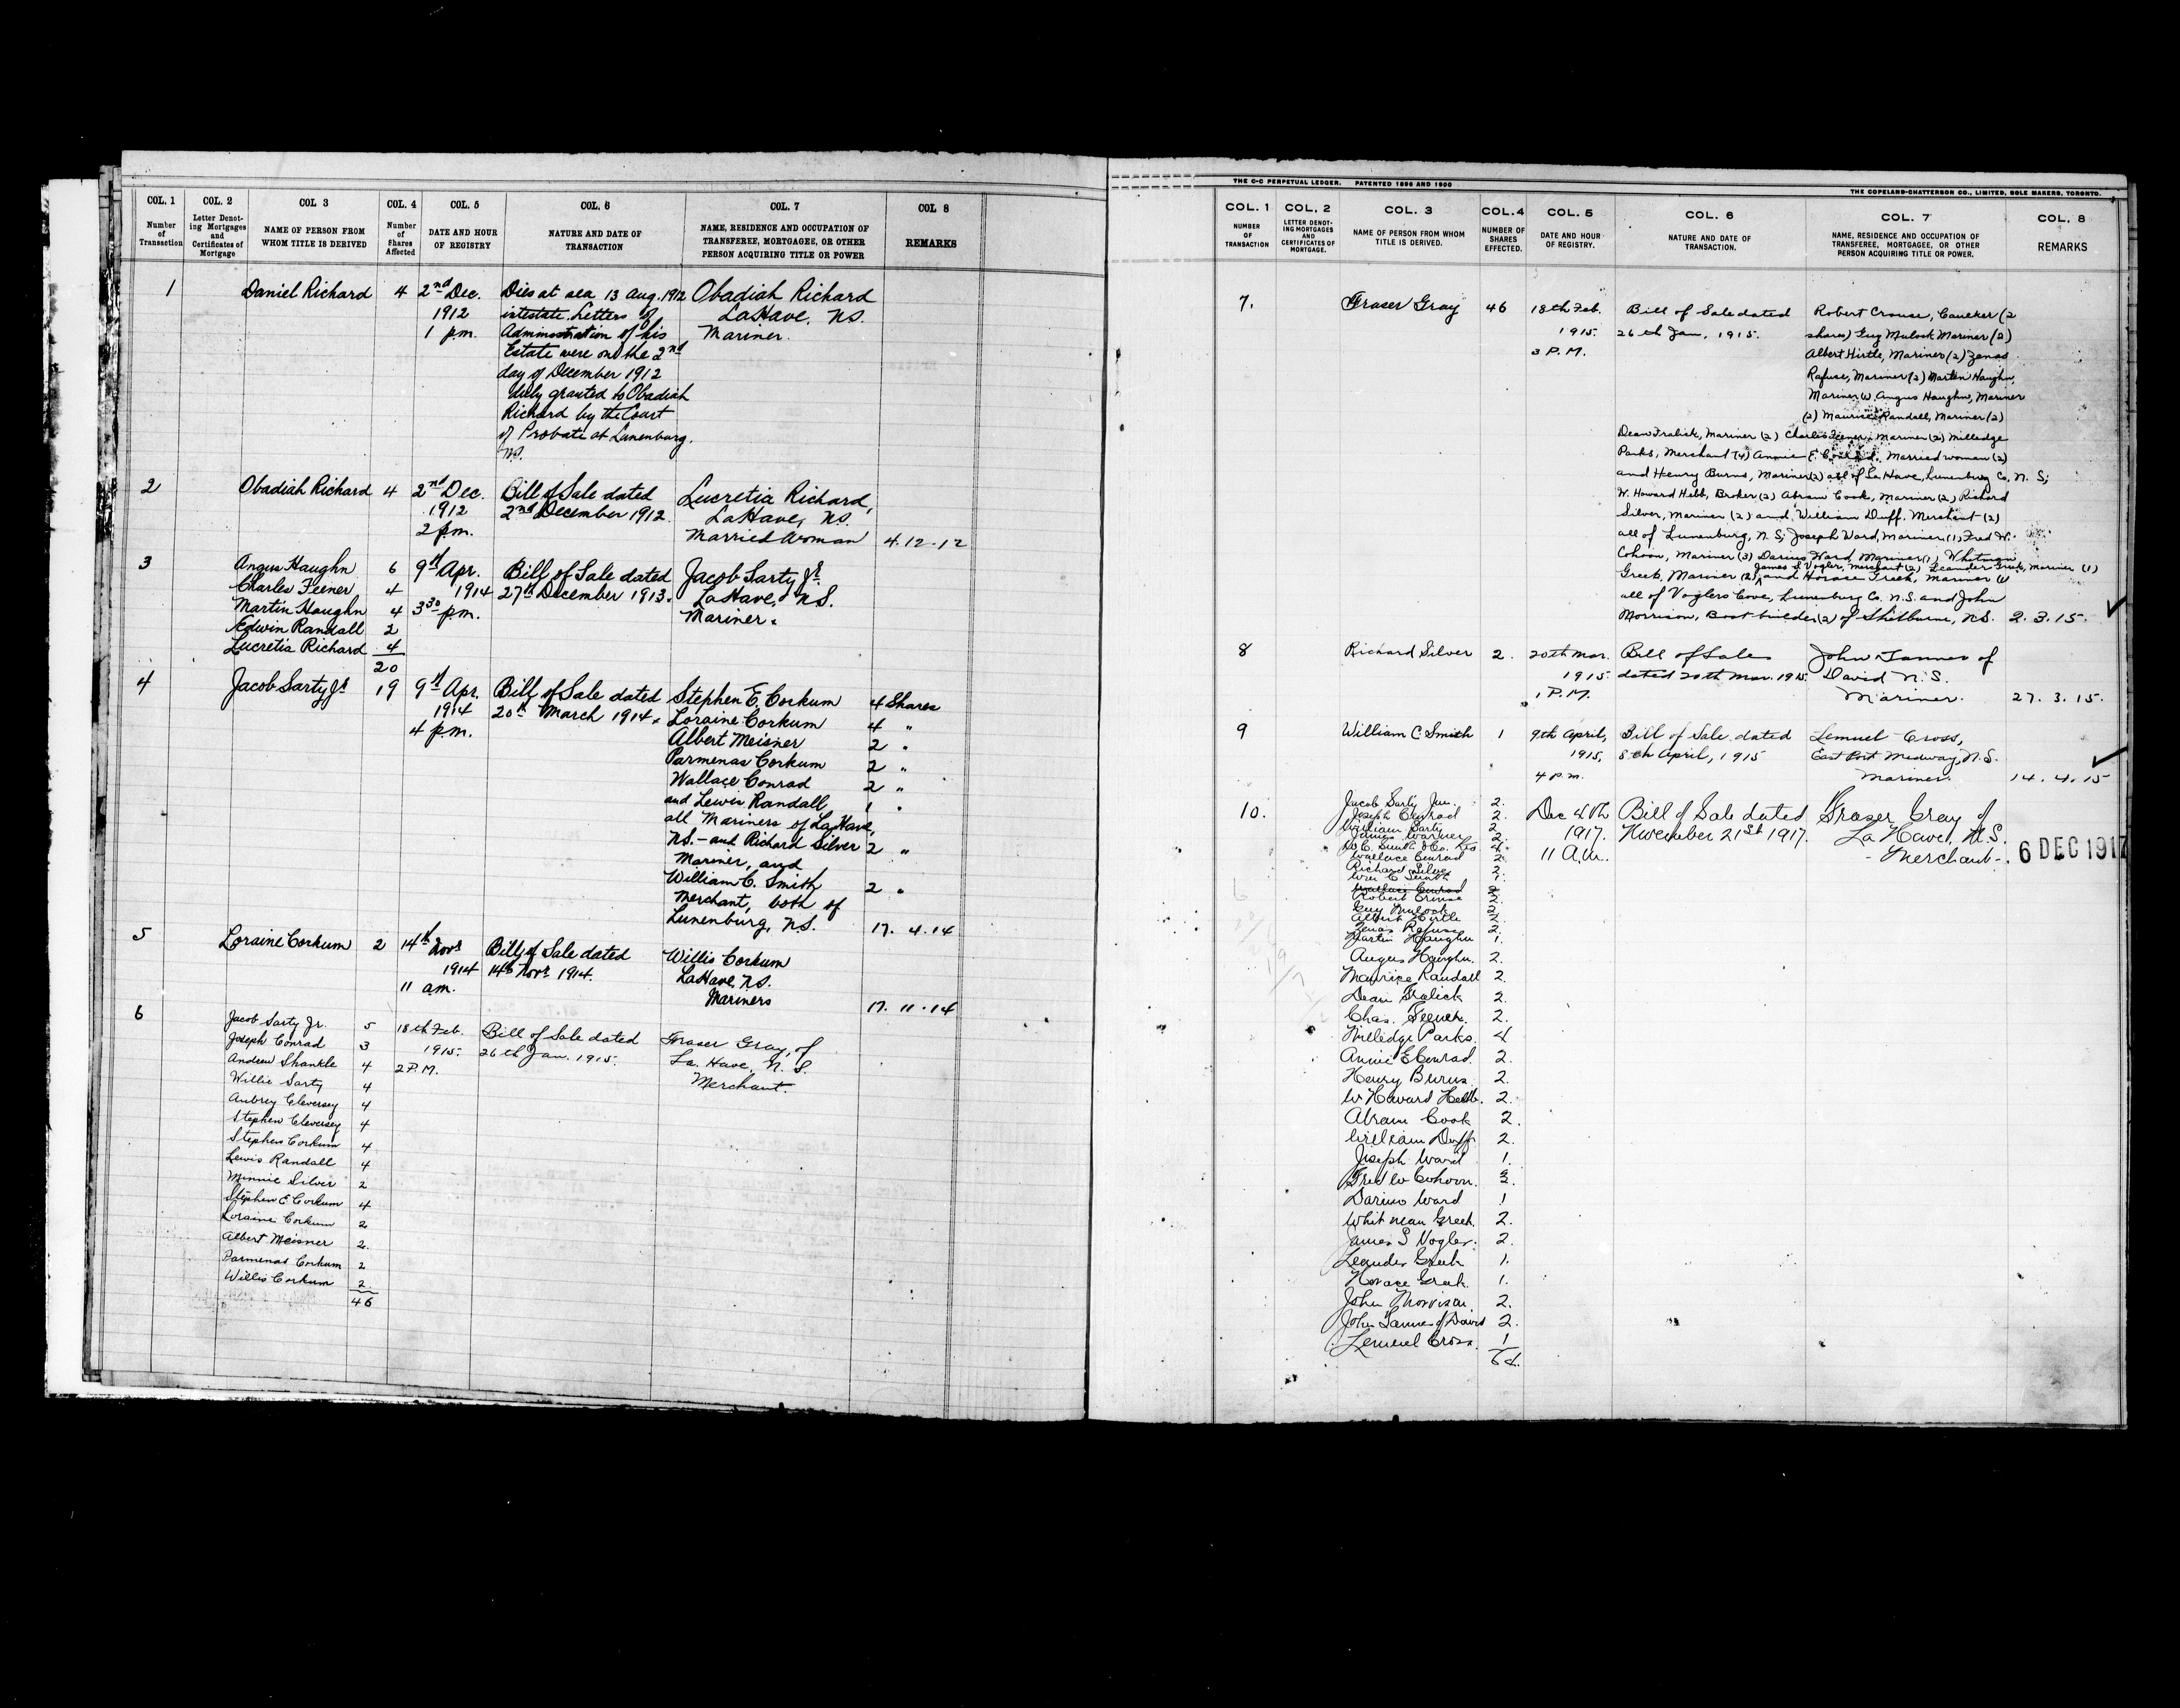 COL. 1 COL. 2 COL. 3 COL. 4 COL. 5 COL. 6 COL. 7 COL 8
Number of Transaction
Letter Denoting Mortgages and Certificates of Mortgage
NAME OF PERSON FROM WHOM TITLE IS DERIVED
Number of Shares Affected
DATE AND HOUR OF REGISTRY
NATURE AND DATE OF TRANSACTION
NAME, RESIDENCE AND OCCUPATION OF TRANSFEREE, MORTGAGEE, OR OTHER PERSON ACQUIRING TITLE OR POWER
REMARKS
1 Daniel Richard 4 2nd Dec. Dies at sea 13 Aug. 1912 Obadiah Richard
1912 intestate. Letters of LaHave, NS.
1 pm. Administration of his Mariner.
Estate were on the 2nd
day of December 1912
duly granted to Obadiah
Richard by the Court
of Probate at Lunenburg.
NS.
2 Obadiah Richard 4 2nd Dec. Bill of Sale dated Lucretia Richard,
1912 2nd December 1912. LaHave, NS.
2 pm. Married Woman 4.12.12
3 Angus Haughn 6 9th Apr. Bill of Sale dated Jacob Sarty Jr.
Charles Feener 4 1914 27th December 1913. LaHave, NS.
Martin Haughn 4 3 30 pm. Mariner.
Edwin Randall 2
Lucretia Richard 4
20
4 Jacob Sarty Jr 19 9th Apr. Bill of Sale dated Stephen E. Corkum 4 Shares
1914 20th March 1914. Loraine Corkum 4 "
4 pm. Albert Meisner 2 "
Parmenas Corkum 2 "
Wallace Conrad 2 "
and Lewis Randall 1 "
all Mariners of LaHave,
NS. - and Richard Silver 2 "
Mariner, and
William C. Smith 2 "
Merchant, both of
Lunenburg, NS. 17. 4.14
5 Loraine Corkum 2 14th Novr Bill of Sale dated Willis Corkum
1914 14th Novr 1914. LaHave, NS.
11 am. Mariners 17. 11.14
6 Jacob Sarty Jr. 5 18th Feb. Bill of Sale dated Fraser Gray, of
Joseph Conrad 3 1915. 26th Jan. 1915. La Have, N. S.
Andrew Shankle 4 2 P.M. Merchant.
Willis Sarty 4
Aubrey Cleversey 4
Stephen Cleversey 4
Stephen Corkum 4
Lewis Randall 4
Minnie Silver 2
Stephen E Corkum 4
Loraine Corkum 2
Albert Meisner 2.
Parmenas Corkum 2
Willis Corkum 2
46
THE C-C PERPETUAL LEDGER. PATENTED 1896 AND 1900
THE COPELAND-CHATTERSON CO., LIMITED, SOLE MAKERS, TORONTO.
COL. 1 COL. 2 COL. 3 COL. 4 COL. 5 COL. 6 COL. 7 COL. 8
NUMBER OF TRANSACTION
LETTER DENOTING MORTGAGES AND CERTIFICATES OF MORTGAGE.
NAME OF PERSON FROM WHOM TITLE IS DERIVED.
NUMBER OF SHARES EFFECTED.
DATE AND HOUR OF REGISTRY.
NATURE AND DATE OF TRANSACTION.
NAME, RESIDENCE AND OCCUPATION OF TRANSFEREE, MORTGAGEE, OR OTHER PERSON ACQUIRING TITLE OR POWER.
REMARKS
7. Fraser Gray 46 18th Feb. Bill of Sale dated Robert Crouse, Caulker (2
1915. 26th Jan, 1915. shares) Guy Mulock Mariner (2)
3 P.M. Albert Hirtle, Mariner (2) Zenas
Rafuse, Mariner (2) Martin Haughn,
Mariner (1) Angus Haughn, Mariner
(2) Maurice Randall, Mariner (2)
Dean Fralick, Mariner (2) Charles Feener, Mariner (2) Milledge
Parks, Merchant (4) Annie E. Conrad, Married woman (2)
and Henry Burns, Mariner (2) all of La Have, Lunenburg Co, N. S;
W. Howard Hebb, Broker (2) Abram Cook, Mariner (2) Richard
Silver, Mariner (2) and William Duff. Merchant (2)
all of Lunenburg, N. S; Joseph Ward, Mariner (1) Fred W.
Cohoon, Mariner (3) Darius Ward Mariner (1) Whitman
James S Vogler, Merchant (2) Leander Greek, Mariner (1)
Greek, Mariner (2) and Horace Greek, Mariner (1)
all of Voglers Cove, Lunenburg Co. N.S. and John
Morrison, Boat builder (2) of Shelburne, N.S. 2.3.15.
8 Richard Silver 2. 20th Mar. Bill of Sale John Tanner of
1915 dated 20th Mar. 1915 David N.S.
1 P.M. Mariner. 27. 3. 15.
9 William C Smith 1 9th April, Bill of Sale dated Lemuel Cross,
1915, 8th April, 1915 East Port Medway, N.S.
4 P.M. Mariner. 14. 4. 15
10. Jacob Sarty Jun. 2. Dec 4th Bill of Sale dated Fraser Gray of
Joseph Conrad 2. 1917. November 21st 1917. La Have, N.S.
William Sarty 2 11 A.M. - Merchant -. 6 DEC 1917
James Warner 2.
W.C. Smith & Co. Ltd 4.
Wallace Conrad 2
Richard Silver 2
Wm C Smith 1.
Wallace Conrad 2
Robert Crouse 2.
Guy Mulock 2
Albert Hirtle 2.
Zenas Rafuse 2.
Martin Haughn 1.
Angus Haughn. 2.
Maurice Randall 2.
Dean Fralick 2.
Chas. Feener. 2.
Milledge Parks. 4
Annie E Conrad. 2.
Henry Burns 2.
W Howard Hebb. 2.
Abram Cook 2.
William Duff 2.
Joseph Ward 1.
Fred W Cohoon. 3.
Darius Ward 1
Whitman Greek. 2.
James S Vogler. 2.
Leander Greek 1.
Horace Greek. 1.
John Morrison. 2.
John Tanner of David 2.
Lemuel Cross. 1
64.